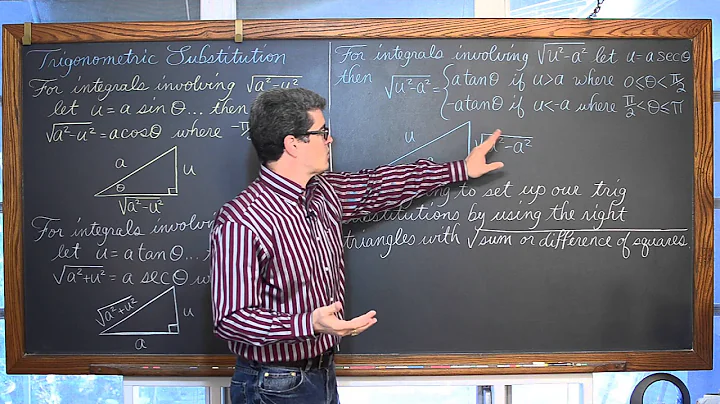 Trigonometric Substitution
For integrals involving √a²-u²
let u = a sin θ... then
√a²-u² = a cos θ where -π
a
u
θ
√a²-u²
For integrals involving
let u = a tan θ...
√a²+u² = a sec θ
√a²+u²
u
a
For integrals involving √u²-a² let u = a sec θ
then √u²-a² = { a tan θ if u > a where 0 ≤ θ < π/2
-a tan θ if u < -a where π/2 < θ ≤ π
u
√u²-a²
to set up our trig
substitutions by using the right
triangles with √sum or difference of squares.